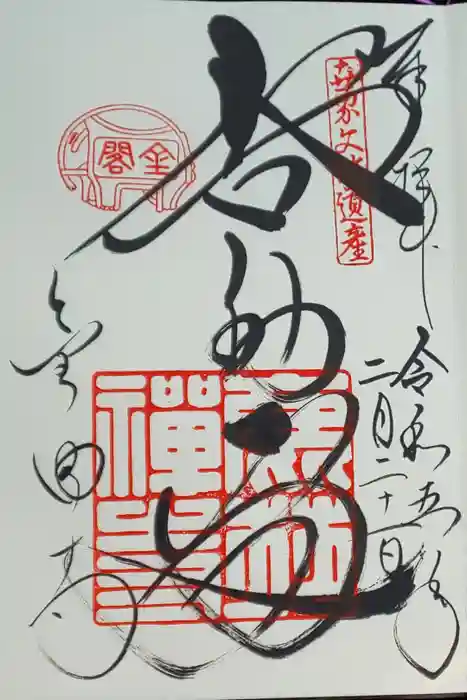 奉拝
令和五年
二月二十一日
世界文化遺産
舎利殿
金閣
金閣寺